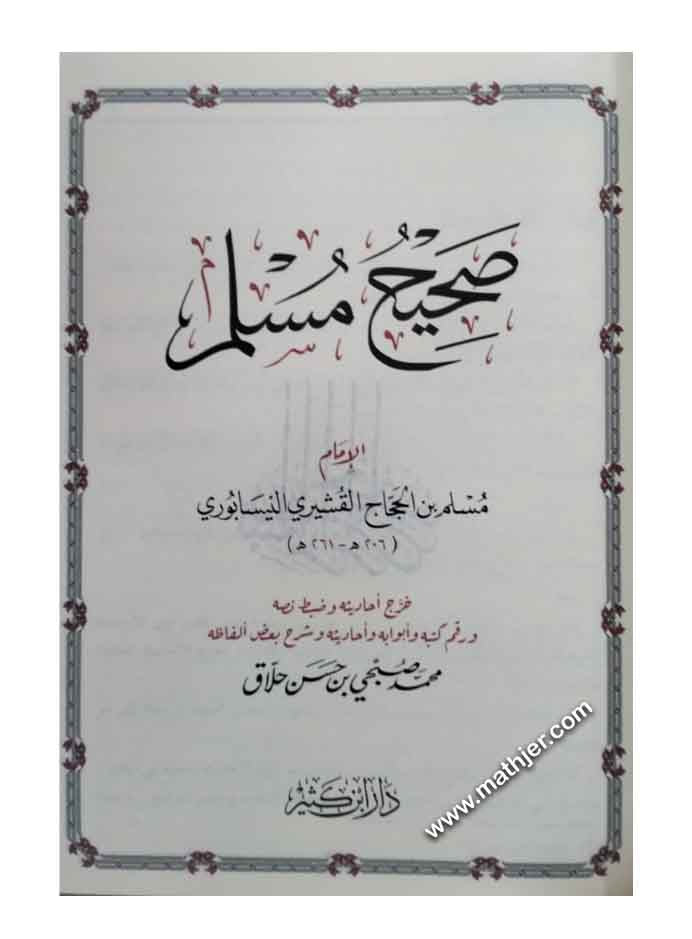 صَحِيحُ مُسْلِم
الإمام
مسلم بن الحجاج القشيري النيسابوري
(٢٠٦هـ - ٢٦١هـ)
خرّج أحاديثه وضبط نصه
ورقم كتبه وأبوابه وأحاديثه وشرح بعض ألفاظه
محمد صبحي بن حسن حلاق
دار ابن كثير
www.mathjer.com